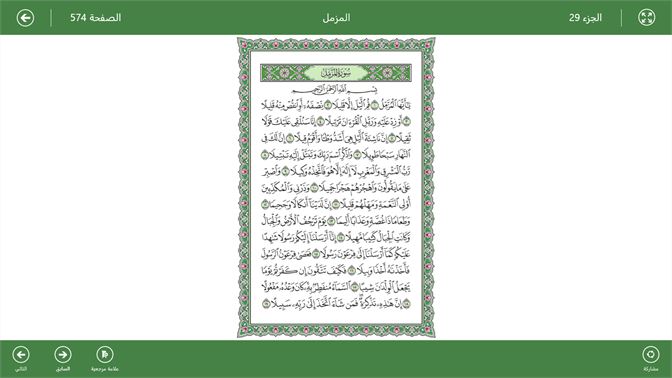 الصفحة 574
المزمل
الجزء 29
سُورَةُ المُزَّمِّلِ
بِسْمِ اللَّهِ الرَّحْمَٰنِ الرَّحِيمِ
يَٰٓأَيُّهَا ٱلْمُزَّمِّلُ ١ قُمِ ٱلَّيْلَ إِلَّا قَلِيلًا ٢ نِّصْفَهُۥٓ أَوِ ٱنقُصْ مِنْهُ قَلِيلًا
٣ أَوْ زِدْ عَلَيْهِ وَرَتِّلِ ٱلْقُرْءَانَ تَرْتِيلًا ٤ إِنَّا سَنُلْقِى عَلَيْكَ قَوْلًا
ثَقِيلًا ٥ إِنَّ نَاشِئَةَ ٱلَّيْلِ هِىَ أَشَدُّ وَطْـًٔا وَأَقْوَمُ قِيلًا ٦ إِنَّ لَكَ فِى
ٱلنَّهَارِ سَبْحًا طَوِيلًا ٧ وَٱذْكُرِ ٱسْمَ رَبِّكَ وَتَبَتَّلْ إِلَيْهِ تَبْتِيلًا ٨
رَّبُّ ٱلْمَشْرِقِ وَٱلْمَغْرِبِ لَآ إِلَٰهَ إِلَّا هُوَ فَٱتَّخِذْهُ وَكِيلًا ٩ وَٱصْبِرْ
عَلَىٰ مَا يَقُولُونَ وَٱهْجُرْهُمْ هَجْرًا جَمِيلًا ١٠ وَذَرْنِى وَٱلْمُكَذِّبِينَ
أُو۟لِى ٱلنَّعْمَةِ وَمَهِّلْهُمْ قَلِيلًا ١١ إِنَّ لَدَيْنَآ أَنكَالًا وَجَحِيمًا ١٢
وَطَعَامًا ذَا غُصَّةٍ وَعَذَابًا أَلِيمًا ١٣ يَوْمَ تَرْجُفُ ٱلْأَرْضُ وَٱلْجِبَالُ
وَكَانَتِ ٱلْجِبَالُ كَثِيبًا مَّهِيلًا ١٤ إِنَّآ أَرْسَلْنَآ إِلَيْكُمْ رَسُولًا شَٰهِدًا
عَلَيْكُمْ كَمَآ أَرْسَلْنَآ إِلَىٰ فِرْعَوْنَ رَسُولًا ١٥ فَعَصَىٰ فِرْعَوْنُ ٱلرَّسُولَ
فَأَخَذْنَٰهُ أَخْذًا وَبِيلًا ١٦ فَكَيْفَ تَتَّقُونَ إِن كَفَرْتُمْ يَوْمًا
يَجْعَلُ ٱلْوِلْدَٰنَ شِيبًا ١٧ ٱلسَّمَآءُ مُنفَطِرٌۢ بِهِۦ كَانَ وَعْدُهُۥ مَفْعُولًا
١٨ إِنَّ هَٰذِهِۦ تَذْكِرَةٌ فَمَن شَآءَ ٱتَّخَذَ إِلَىٰ رَبِّهِۦ سَبِيلًا ١٩
التالي
السابق
علامة مرجعية
مشاركة